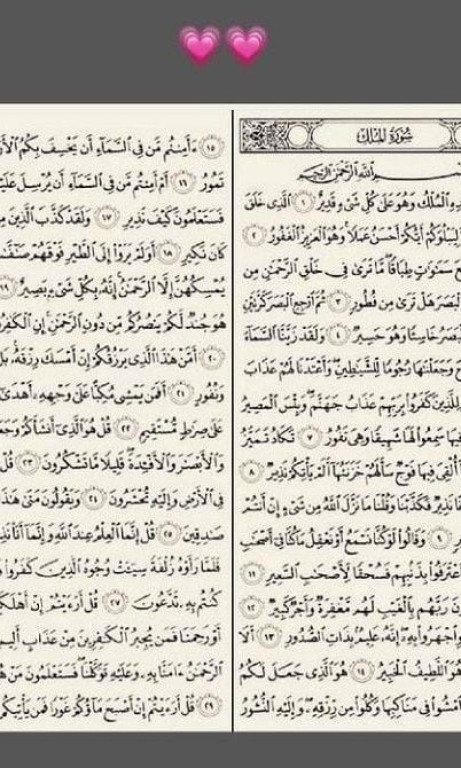 سُورَةُ الْمُلْكِ
اللَّهِ الرَّحْمَٰنِ الرَّحِيمِ
الْمُلْكُ وَهُوَ عَلَىٰ كُلِّ شَيْءٍ قَدِيرٌ ١ الَّذِي خَلَقَ
لِيَبْلُوَكُمْ أَيُّكُمْ أَحْسَنُ عَمَلًا وَهُوَ الْعَزِيزُ الْغَفُورُ ٢
سَمَٰوَٰتٍ طِبَاقًا مَّا تَرَىٰ فِي خَلْقِ الرَّحْمَٰنِ مِن
الْبَصَرَ هَلْ تَرَىٰ مِن فُطُورٍ ٣ ثُمَّ ارْجِعِ الْبَصَرَ كَرَّتَيْنِ
الْبَصَرُ خَاسِئًا وَهُوَ حَسِيرٌ ٤ وَلَقَدْ زَيَّنَّا السَّمَاءَ
وَجَعَلْنَٰهَا رُجُومًا لِّلشَّيَٰطِينِ وَأَعْتَدْنَا لَهُمْ عَذَابَ
وَلِلَّذِينَ كَفَرُوا بِرَبِّهِمْ عَذَابُ جَهَنَّمَ وَبِئْسَ الْمَصِيرُ
فِيهَا سَمِعُوا لَهَا شَهِيقًا وَهِيَ تَفُورُ ٧ تَكَادُ تَمَيَّزُ
أُلْقِيَ فِيهَا فَوْجٌ سَأَلَهُمْ خَزَنَتُهَا أَلَمْ يَأْتِكُمْ نَذِيرٌ ٨
نَذِيرٌ فَكَذَّبْنَا وَقُلْنَا مَا نَزَّلَ اللَّهُ مِن شَيْءٍ إِنْ أَنتُمْ
٩ وَقَالُوا لَوْ كُنَّا نَسْمَعُ أَوْ نَعْقِلُ مَا كُنَّا فِي أَصْحَٰبِ
فَاعْتَرَفُوا بِذَنبِهِمْ فَسُحْقًا لِّأَصْحَٰبِ السَّعِيرِ ١١
رَبَّهُم بِالْغَيْبِ لَهُم مَّغْفِرَةٌ وَأَجْرٌ كَبِيرٌ ١٢
اجْهَرُوا بِهِ إِنَّهُ عَلِيمٌ بِذَاتِ الصُّدُورِ ١٣ أَلَا
وَهُوَ اللَّطِيفُ الْخَبِيرُ ١٤ هُوَ الَّذِي جَعَلَ لَكُمُ
فَامْشُوا فِي مَنَاكِبِهَا وَكُلُوا مِن رِّزْقِهِ وَإِلَيْهِ النُّشُورُ
١٥ ءَأَمِنتُم مَّن فِي السَّمَاءِ أَن يَخْسِفَ بِكُمُ
تَمُورُ ١٦ أَمْ أَمِنتُم مَّن فِي السَّمَاءِ أَن يُرْسِلَ
فَسَتَعْلَمُونَ كَيْفَ نَذِيرِ ١٧ وَلَقَدْ كَذَّبَ الَّذِينَ
كَانَ نَكِيرِ ١٨ أَوَلَمْ يَرَوْا إِلَى الطَّيْرِ فَوْقَهُمْ
يُمْسِكُهُنَّ إِلَّا الرَّحْمَٰنُ إِنَّهُ بِكُلِّ شَيْءٍ بَصِيرٌ ١٩
هُوَ جُندٌ لَّكُمْ يَنصُرُكُم مِّن دُونِ الرَّحْمَٰنِ إِنِ
٢٠ أَمَّنْ هَٰذَا الَّذِي يَرْزُقُكُمْ إِنْ أَمْسَكَ رِزْقَهُ بَل
وَنُفُورٍ ٢١ أَفَمَن يَمْشِي مُكِبًّا عَلَىٰ وَجْهِهِ أَهْدَىٰ
عَلَىٰ صِرَٰطٍ مُّسْتَقِيمٍ ٢٢ قُلْ هُوَ الَّذِي أَنشَأَكُمْ
وَالْأَبْصَٰرَ وَالْأَفْئِدَةَ قَلِيلًا مَّا تَشْكُرُونَ ٢٣ قُلْ
فِي الْأَرْضِ وَإِلَيْهِ تُحْشَرُونَ ٢٤ وَيَقُولُونَ مَتَىٰ
صَٰدِقِينَ ٢٥ قُلْ إِنَّمَا الْعِلْمُ عِندَ اللَّهِ وَإِنَّمَا أَنَا
فَلَمَّا رَأَوْهُ زُلْفَةً سِيئَتْ وُجُوهُ الَّذِينَ كَفَرُوا
كُنتُم بِهِ تَدَّعُونَ ٢٧ قُلْ أَرَءَيْتُمْ إِنْ
أَوْ رَحِمَنَا فَمَن يُجِيرُ الْكَٰفِرِينَ مِنْ عَذَابٍ
الرَّحْمَٰنُ ءَامَنَّا بِهِ وَعَلَيْهِ تَوَكَّلْنَا فَسَتَعْلَمُونَ مَنْ
٢٩ قُلْ أَرَءَيْتُمْ إِنْ أَصْبَحَ مَاؤُكُمْ غَوْرًا فَمَن